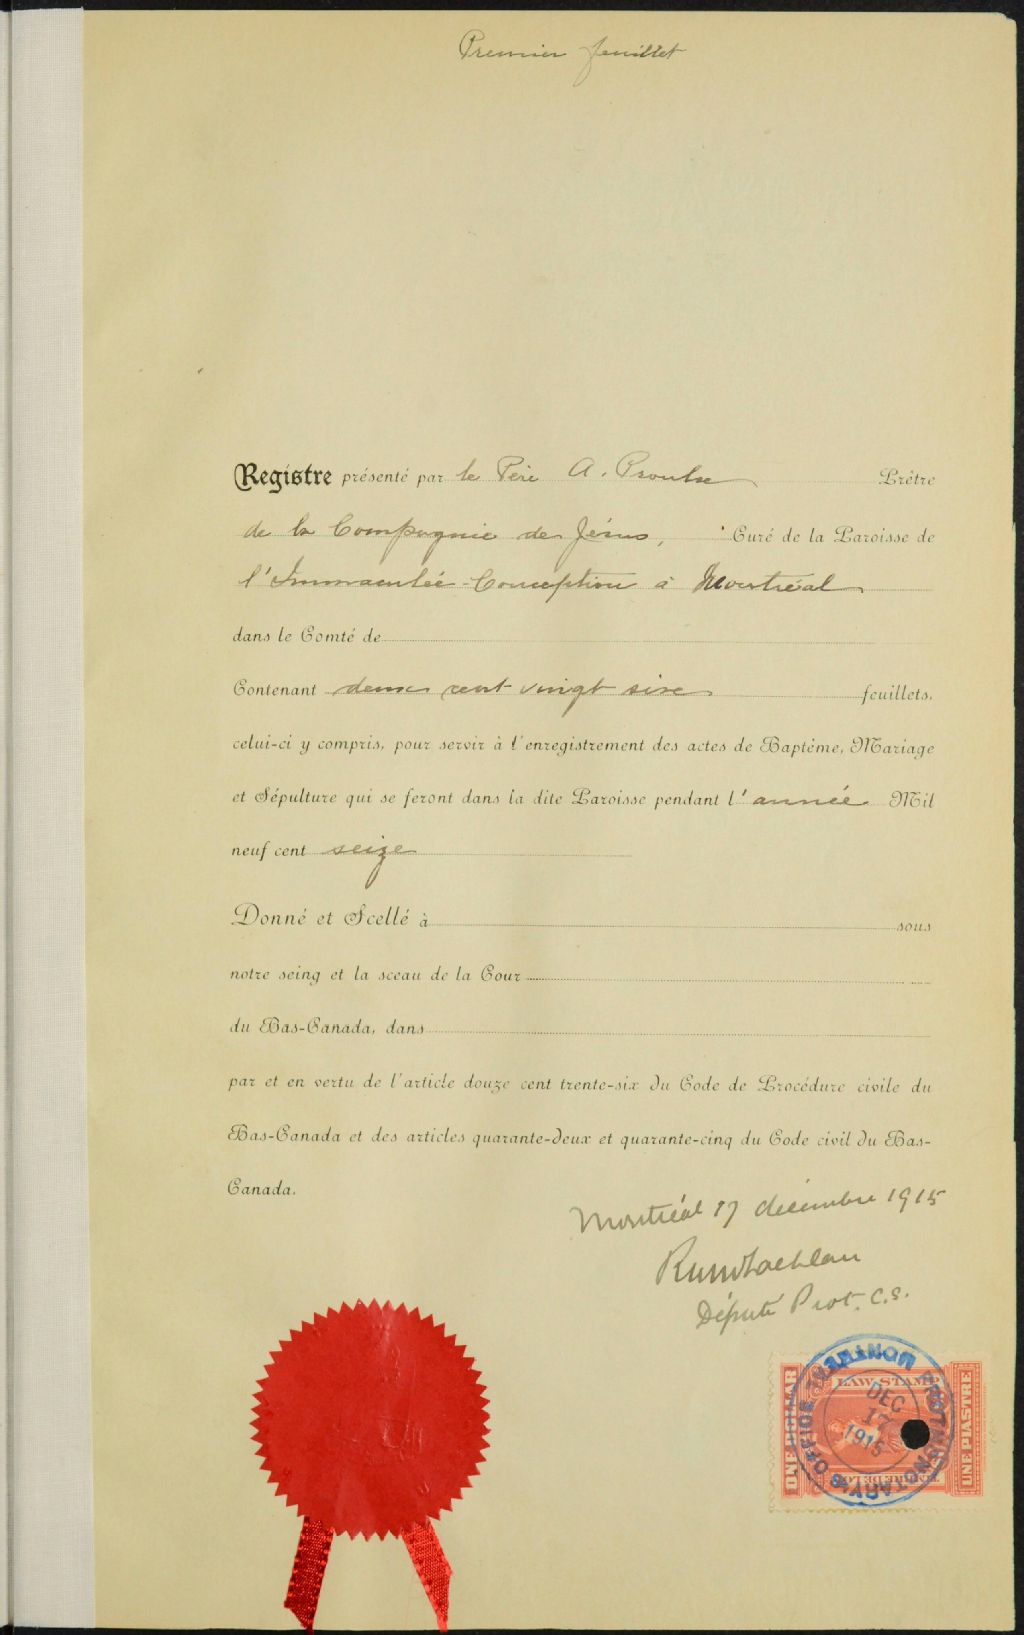 Premier feuillet
Registre présenté par le Père A. Proulx Prêtre
de la Compagnie de Jésus, Curé de la Paroisse de
l'Immaculée-Conception à Montréal
dans le Comté de
Contenant deux cent vingt six feuillets,
celui-ci y compris, pour servir à l'enregistrement des actes de Baptême, Mariage
et Sépulture qui se feront dans la dite Paroisse pendant l'année Mil
neuf cent seize
Donné et Scellé à sous
notre seing et la sceau de la Cour
du Bas-Canada, dans
par et en vertu de l'article douze cent trente-six du Code de Procédure civile du
Bas-Canada et des articles quarante-deux et quarante-cinq du Code civil du Bas-
Canada.
Montréal 17 décembre 1915
Député Prot. C.S.
PROTHONOTARY'S OFFICE MONTREAL
DEC
17
1915
LAW STAMP
ONE DOLLAR
UNE PIASTRE